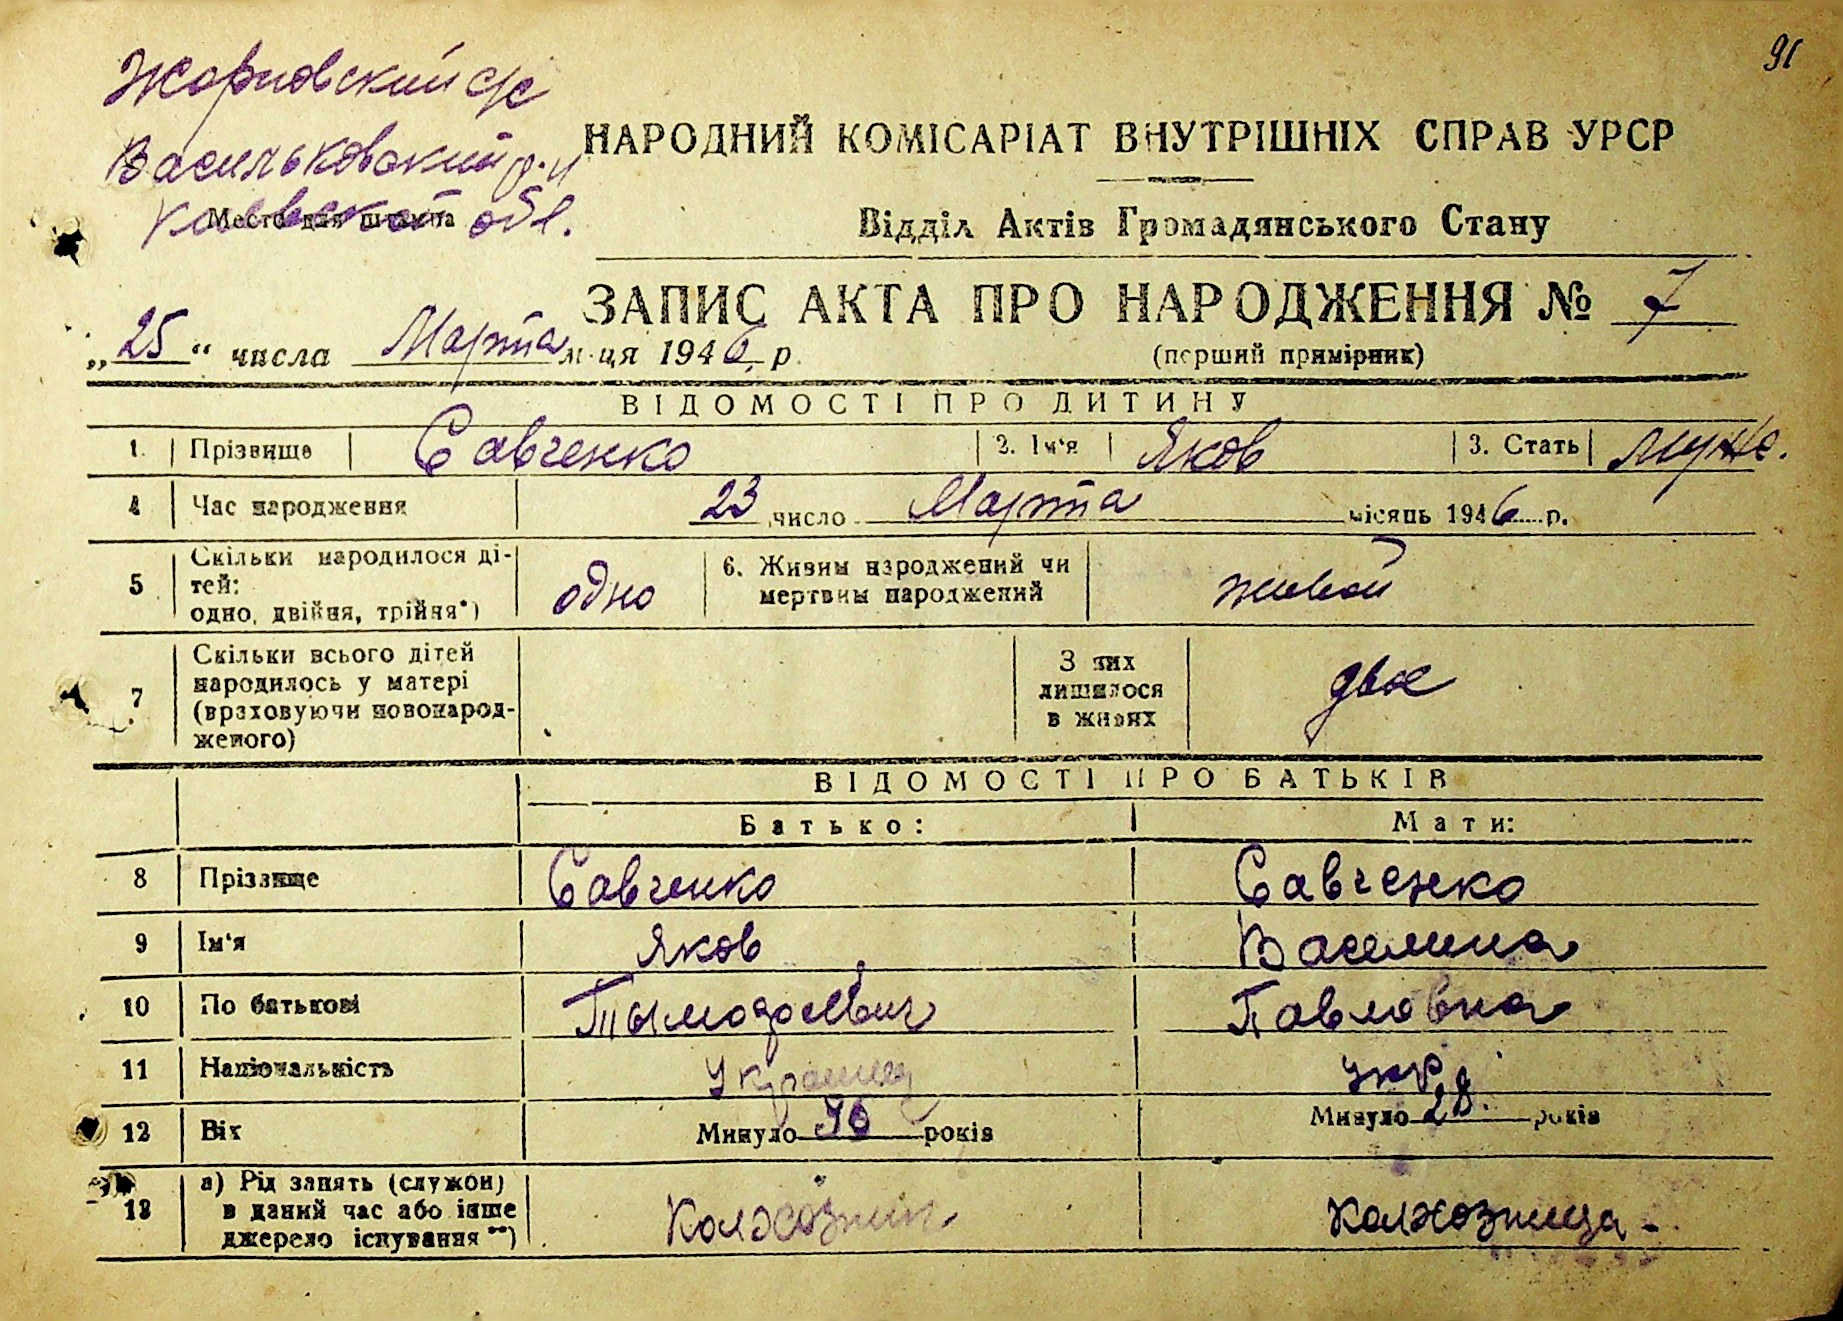 91
Жорновский с/с
Васильковский р-н
Киевской обл.
Место для штампа
НАРОДНИЙ КОМІСАРІАТ ВНУТРІШНІХ СПРАВ УРСР
Відділ Актів Громадянського Стану
ЗАПИС АКТА ПРО НАРОДЖЕННЯ № 7
„25“ числа Марта м-ця 1946 р.
(перший примірник)
ВІДОМОСТІ ПРО ДИТИНУ
1. Прізвище Савченко 2. Ім'я Яков 3. Стать муж.
4 Час народження 23 число Марта місяць 1946 р.
5 Скільки народилося ді-
тей:
одно, двійня, трійня*) одно 6. Живим народжений чи
мертвим народжений живой
7 Скільки всього дітей
народилось у матері
(враховуючи новонарод-
женого) З них
лишилося
в живих двое
ВІДОМОСТІ ПРО БАТЬКІВ
Батько: Мати:
8 Прізвище Савченко Савченко
9 Ім'я Яков Васелина
10 По батькові Тымофоевич Павловна
11 Національність Украинец укр
12 Вік Минуло років Минуло 28 років
13 а) Рід занять (служби)
в даний час або інше
джерело існування **) Колхозник Колхозница